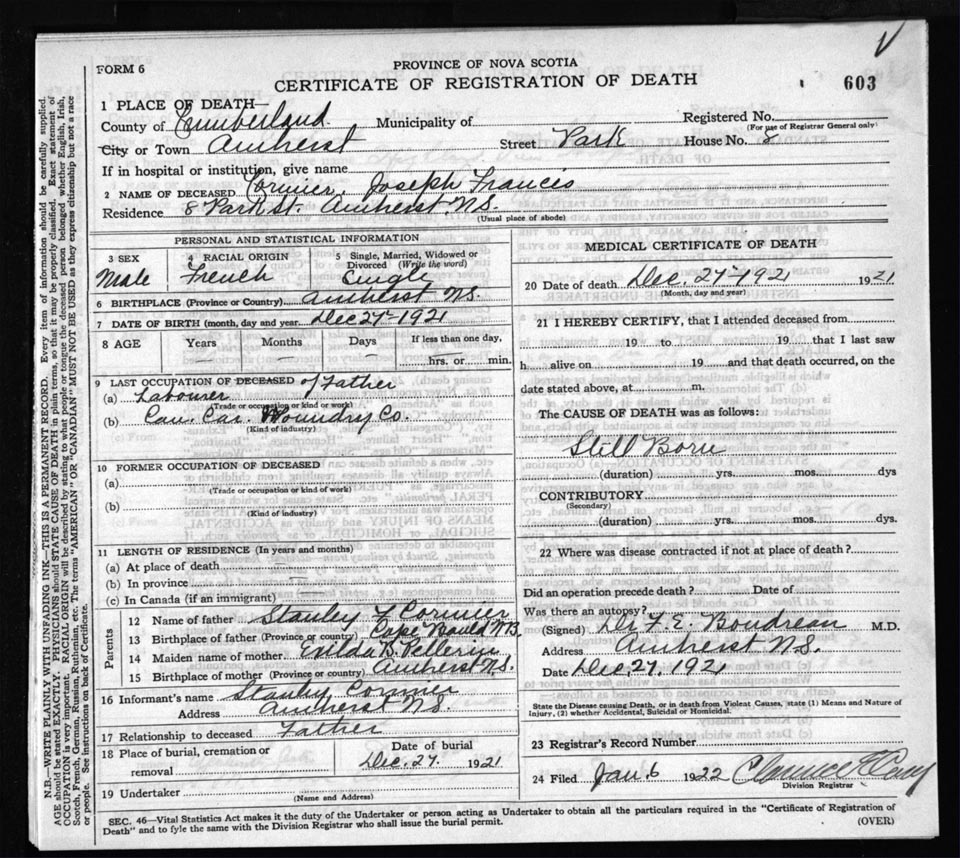 PROVINCE OF NOVA SCOTIA
FORM 6
CERTIFICATE OF REGISTRATION OF DEATH
603
1 PLACE OF DEATH—
County of Cumberland Municipality of
Registered No.
(For use of Registrar General only)
City or Town Amherst Street Park House No. 8
If in hospital or institution, give name
2 NAME OF DECEASED Cormier, Joseph Francis
Residence 8 Park St. Amherst, N.S.
(Usual place of abode)
PERSONAL AND STATISTICAL INFORMATION
3 SEX Male
4 RACIAL ORIGIN French
5 Single, Married, Widowed or Divorced (Write the word) Single
6 BIRTHPLACE (Province or Country) Amherst N.S.
7 DATE OF BIRTH (month, day and year Dec 27-1921
8 AGE Years Months Days If less than one day,
— — — hrs. or min.
9 LAST OCCUPATION OF DECEASED of Father
(a) Labourer
(Trade or occupation or kind or work)
(b) Can. Car. Foundry Co.
(Kind of industry)
10 FORMER OCCUPATION OF DECEASED
(a)
(Trade or occupation or kind of work)
(b)
(Kind of industry)
11 LENGTH OF RESIDENCE (In years and months)
(a) At place of death
(b) In province
(c) In Canada (if an immigrant)
Parents
12 Name of father Stanley F Cormier
13 Birthplace of father (Province or country) Cape Bauld N.B.
14 Maiden name of mother B. Pellerin
15 Birthplace of mother (Province or country) Amherst N.S.
16 Informant's name Stanley Cormier
Address Amherst N.S.
17 Relationship to deceased Father
18 Place of burial, cremation or removal
Date of burial
Dec. 27. 1921
19 Undertaker
(Name and Address)
MEDICAL CERTIFICATE OF DEATH
20 Date of death Dec. 27-1921 1921
(Month, day and year)
21 I HEREBY CERTIFY, that I attended deceased from
19 to 19 that I last saw
h alive on 19 and that death occurred, on the
date stated above, at m.
The CAUSE OF DEATH was as follows:
Still Born
(duration) yrs. mos. dys
CONTRIBUTORY
(Secondary)
(duration) yrs. mos. dys.
22 Where was disease contracted if not at place of death?
Did an operation precede death? Date of
Was there an autopsy?
(Signed) Dr. F. E. Boudreau M.D.
Address Amherst N.S.
Date Dec, 27, 1921
State the Disease causing Death, or in death from Violent Causes, state (1) Means and Nature of
Injury, (2) whether Accidental, Suicidal or Homicidal.
23 Registrar's Record Number
24 Filed Jan 6 1922
Division Registrar
SEC. 46—Vital Statistics Act makes it the duty of the Undertaker or person acting as Undertaker to obtain all the particulars required in the "Certificate of Registration of
Death" and to fyle the same with the Division Registrar who shall issue the burial permit.
(OVER)
N.B. WRITE PLAINLY WITH UNFADING INK—THIS IS A PERMANENT RECORD. Every item of information should be carefully supplied.
AGE should be stated EXACTLY. PHYSICIANS should STATE CAUSE OF DEATH in plain terms, so that it may be properly classified. Exact statement of
OCCUPATION is very important. RACIAL ORIGIN will be described by stating to what people or tongue the deceased person belonged whether English, Irish,
Scotch, French, German, Russian, Ruthenian, etc. The terms "AMERICAN" OR "CANADIAN" MUST NOT BE USED as they express citizenship but not a race
or people. See instructions on back of Certificate.